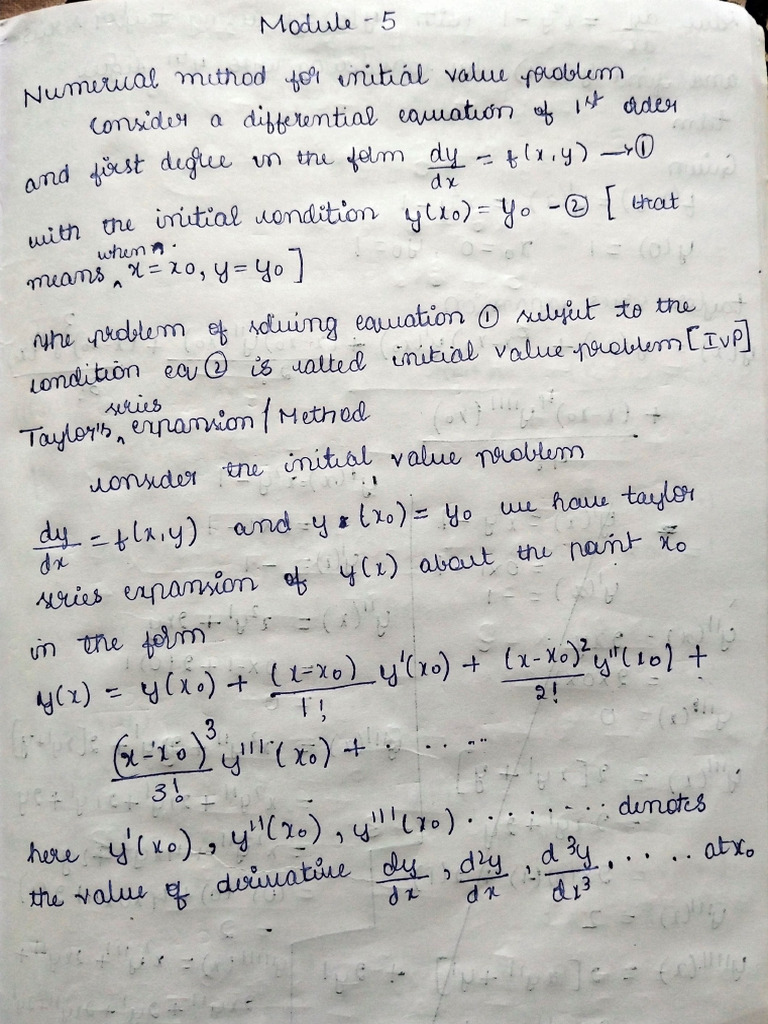 Module - 5
Numerical method for initial value problem
Consider a differential equation of 1st order
and first degree in the form dy/dx = f(x, y) → ①
with the initial condition y(x₀) = y₀ - ② [ that
means when x = x₀, y = y₀ ]
The problem of solving equation ① subject to the
condition eq ② is called initial value problem [IVP]
Taylor's series expansion / Method
consider the initial value problem
dy/dx = f(x, y) and y (x₀) = y₀ we have taylor
series expansion of y(x) about the point x₀
in the form
y(x) = y(x₀) + (x-x₀)/1! y'(x₀) + (x-x₀)²/2! y''(x₀) +
(x-x₀)³/3! y'''(x₀) + . . . . .
here y'(x₀), y''(x₀), y'''(x₀) . . . . . . . . denotes
the value of derivative dy/dx, d²y/dx, d³y/dx³, . . . . . at x₀